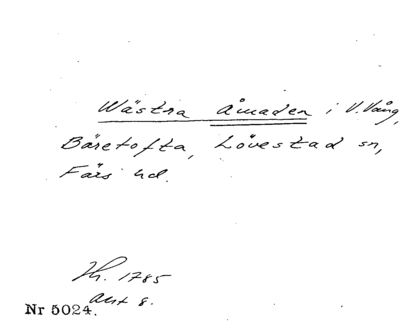 Wästra Åmaden i V. Vång,
Bäretofta, Lövestad sn,
Färs hd.
Lh. 1785
akt 8.
Nr 5024.